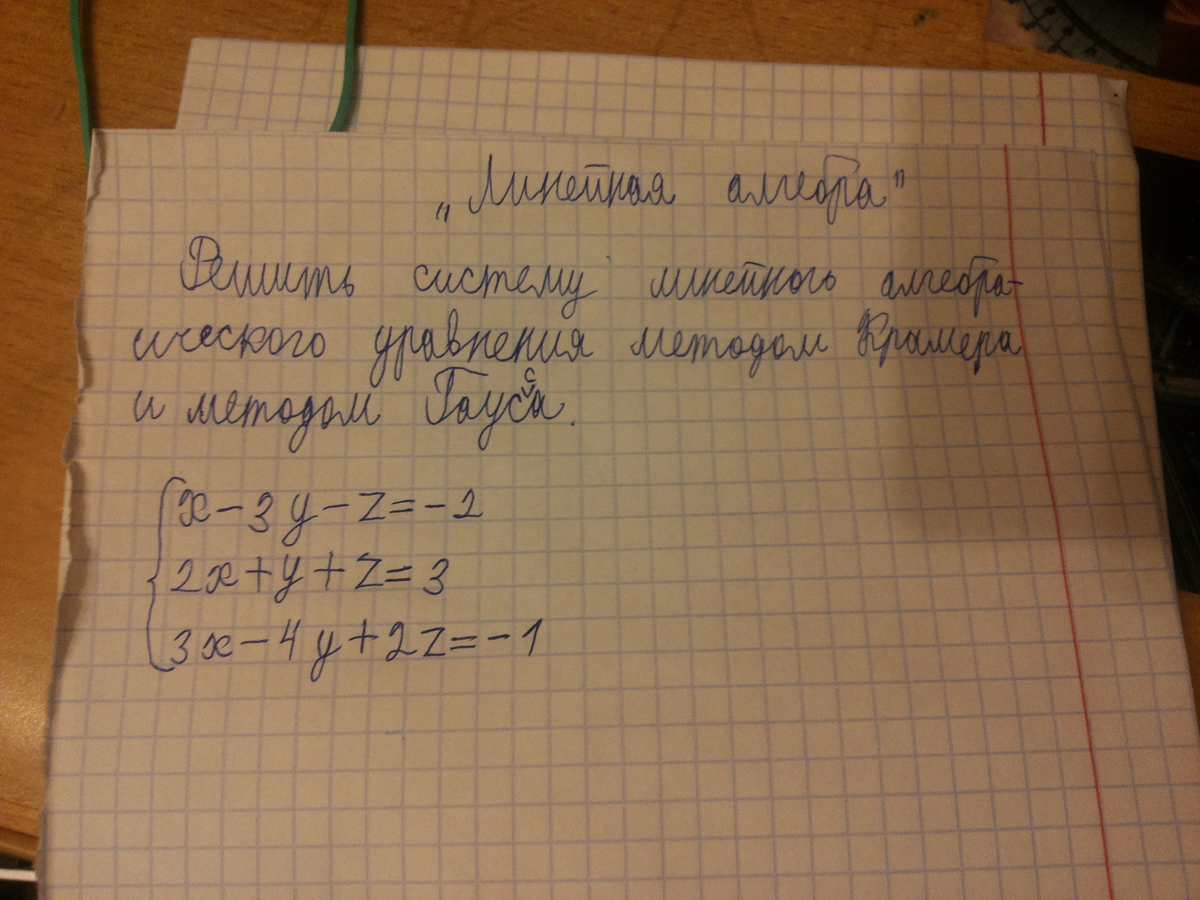 „Линейная алгебра"
Решить систему линейного алгебра-
ического уравнения методом Крамера
и методом Гаусса.
x-3y-z=-2
2x+y+z=3
3x-4y+2z=-1